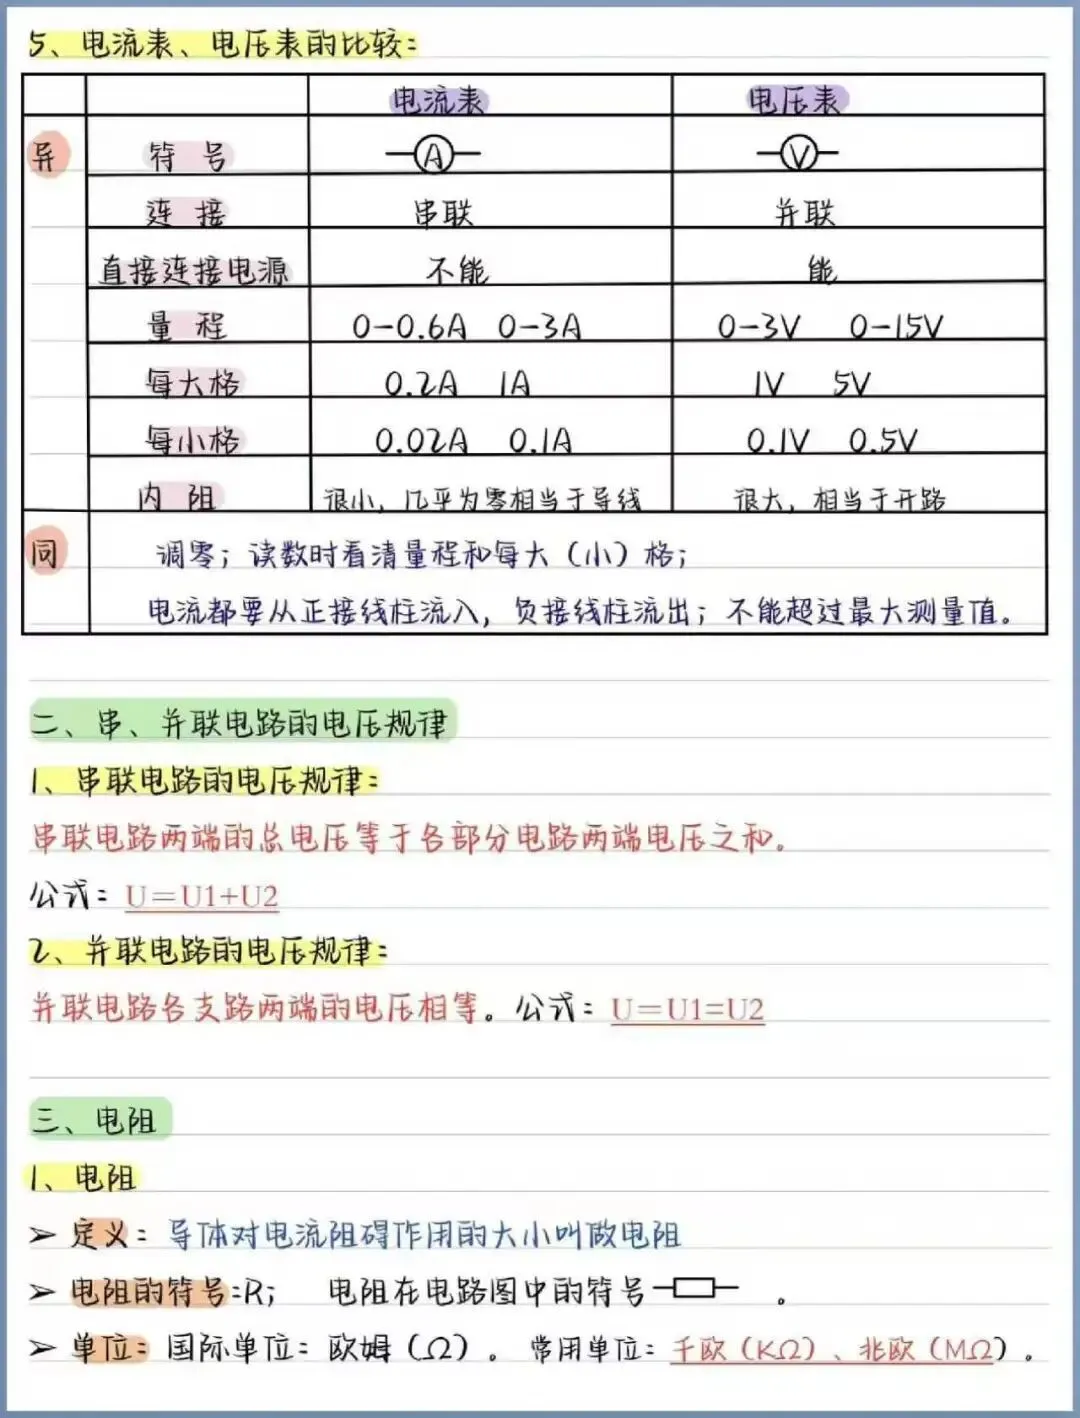 5、电流表、电压表的比较:
电流表 电压表
异 符号 A V
连接 串联 并联
直接连接电源 不能 能
量程 0-0.6A 0-3A 0-3V 0-15V
每大格 0.2A 1A 1V 5V
每小格 0.02A 0.1A 0.1V 0.5V
内阻 很小，几乎为零相当于导线 很大，相当于开路
同 调零；读数时看清量程和每大（小）格；
电流都要从正接线柱流入，负接线柱流出；不能超过最大测量值。
二、串、并联电路的电压规律
1、串联电路的电压规律:
串联电路两端的总电压等于各部分电路两端电压之和。
公式: U=U1+U2
2、并联电路的电压规律:
并联电路各支路两端的电压相等。公式: U=U1=U2
三、电阻
1、电阻
➢ 定义: 导体对电流阻碍作用的大小叫做电阻
➢ 电阻的符号:R; 电阻在电路图中的符号 。
➢ 单位: 国际单位: 欧姆（Ω）。 常用单位: 千欧（KΩ）、兆欧（MΩ）。